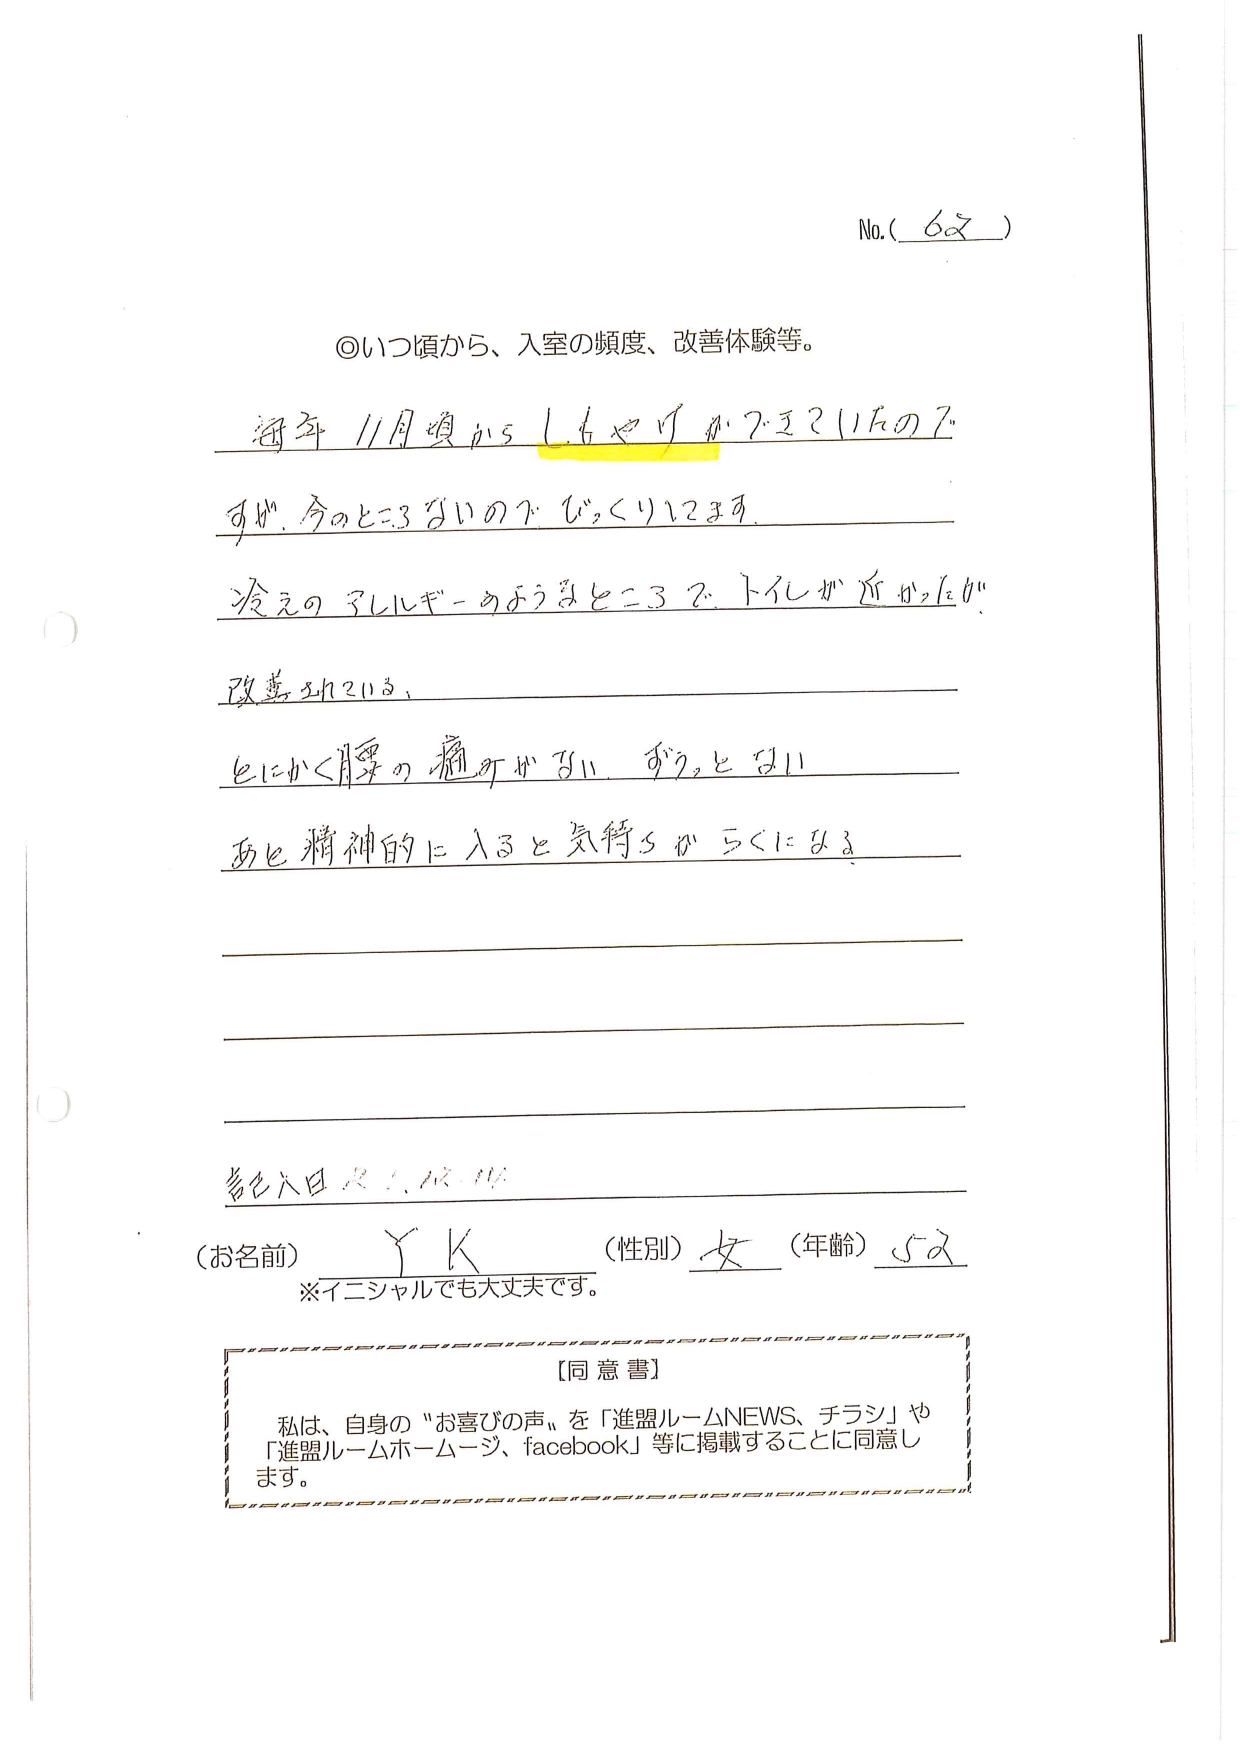 No.( 62 )
◎いつ頃から、入室の頻度、改善体験等。
毎年 11月頃から しもやけができていたので
すが、今のところないので びっくりしてます。
冷えのアレルギーのようなところで トイレが近かったが
改善されている。
とにかく腰の痛みがない ずうっとない
あと精神的に入ると気持ちがらくになる
記入日
(お名前) Y K (性別) 女 (年齢) 52
※イニシャルでも大丈夫です。
【同 意 書】
私は、自身の〝お喜びの声〟を「進盟ルームNEWS、チラシ」や
「進盟ルームホームージ、facebook」等に掲載することに同意し
ます。